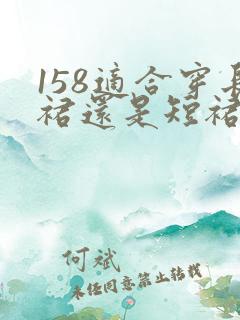 158適合穿長
裙還是短裙
何斌
未经同意禁止转载